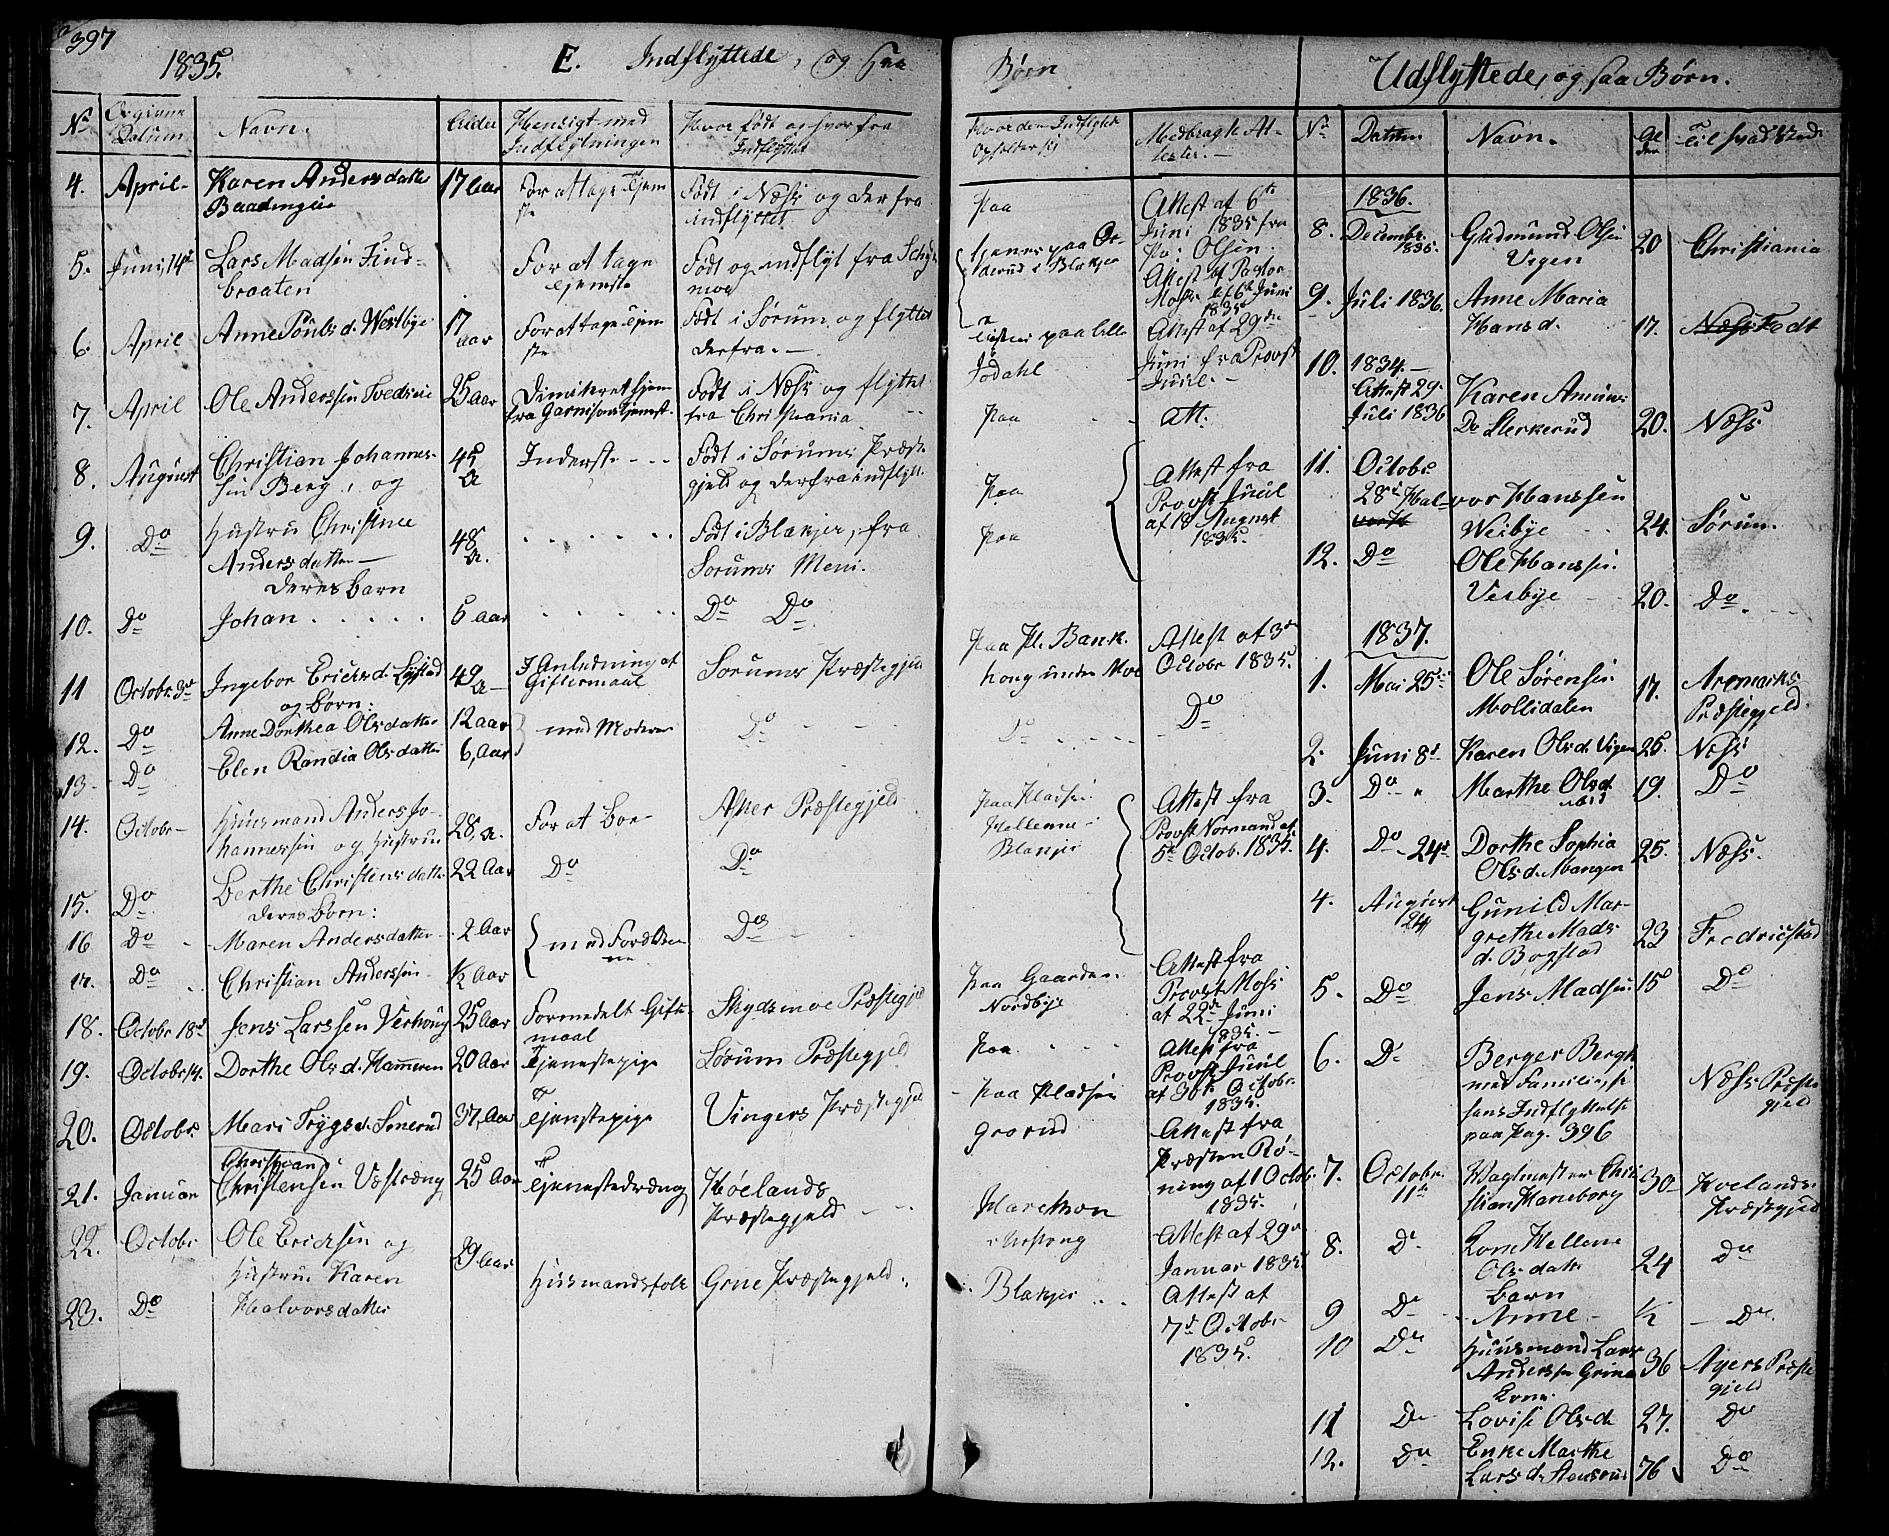 397
1835.
E. Indflyttede, og saa Børn
Udflyttede, og saa Børn.
No
Datum
Navn.
Alder
Hensigt med Indflytningen
Hvor født og hvorfra Indflyttet
Medbragte Attester.
No
Datum
Navn.
Alder
Til hvad Sted
4. April- Karen Andersdatter 17 Aar For at tage Tjeneste Født i Næss og derfra indflyttet
paa
Attest af 6te Juni 1835 fra
5. Juni 14de Lars Madsen Find-
braaten
For at tage Tjeneste
Født og indflyt fra
tjener paa
i Blakjer
Attest af Pastor Moss af 6te Juni 1835
6. April Anne Poulsd. Westbye 17 aar For at tage Tjeneste Født i Sørum og flyttet derfra. —
paa lille
Attest af 29de Juni fra Provst Juul. —
7. April Ole Anderssen 25 aar Dimitteret hjem fra Garnisonstjenest. Født i Næss og flyttet fra Christiania
paa
Att.
8. August Christian Johannes-
sen Berg, og
45 A
Inderst - - -
Født i Sørums Præste
gjeld og derfra indflytt.
paa
Attest fra Provst Juul af 18 August 1835.
9. Do Hustru Christine
Andersdatter —
48 A.
Født i Blakjer, fra
Sorums Meni.
paa
deres barn
10. Do Johan . . . . . 5 aar Do Do
11 Octobr 3de Ingebor Ericksd. Lystad
og Børn:
49 A—
I Anledning af
Giftermaal
Sorums Præstegjeld
paa Pl. Bank.
houg under Moe
Attest af 3de Octobr 1835.
12. Do Anne Dorthea Olsdatter 12 aar med Moderen Do
Do
Do
13. Do Elen Randia Olsdatter 6, Aar
14. Octobr— Huusmand Anders Jo-
hannessen og Hustru
28, A.
For at boe
Asker Præstegjeld
paa Pladsen
Hellenne
Blakjer
Attest fra Provst Normand af 5te Octob. 1835.
15. Do Berthe Christensdatter 22 Aar Do Do
deres børn:
16 Do Maren Andersdatter 2 Aar med Forældrene Do
17. Do Christian Anderssen ½ Aar
18. Octobr 18de Jens Larssen Verhoug 25 Aar Formedelt Gifte-
maal
Skydsmoe Præstegjeld
paa Gaarden
Nordbye
Attest fra Provst Moss af 22de Juni 1835. —
19. Octobr 14. Dorthe Olsd. Hammeren 20 Aar Tjenestepige Sørum Præstegjeld
paa . . . .
Attest fra Provst Juul af 30te Octobr. 1835.
20. Octobr. Mari Tryggsd. Smerud 37, Aar Tjenestepige Vingers Præstegjeld
paa Pladsen
Grorud
Attest fra Præsten Rø-
ning af 1 Octobr 1835.
21. Januar Christian
Christensen
25 Aar Tjenestedræng Høelands
Præstegjeld
Attest af 29de
Januar 1835
22. Octobr Ole Ericksen og
Hustrue Karen
29 Aar Husmandsfolk Grue Præstegjeld.
Blakjer . . .
Attest af
7de Octobr.
1835.
23. Do Halvorsdatter
1836.
8. Decembr. 1835. Gudmund Olsen
Vigen
20 Christiania
9. Juli 1836. Anne Maria
Hansd.
17. Næss
10. 1834. —
Attest 29.
Juli 1836
Karen Amunds
Dr Sterkerud
20. Næss
11. Octobr.
28de Halvor Hanssen
Weibye
24. Sørum.
12. Do Ole Hanssen
Veibye
20. Do
1837.
1. Mai 25de Ole Sørensen
Mollidalen
17. Aremarks
Præstegjeld.
2. Juni 8de Karen Olsd. Vigen 25. Næss
3. Do Marthe Olsd. 19. Do
4. Do - 24de Dorthe Sophia
Olsd. Mangen
25. Næss.
4. August
24
Gunild Mar-
grethe Mads
d. Bogstad
23 Fredricstad
5. Do Jens Madsen 15 Do
6. Do Berger Bergh
med Familie, se
hans Indflyttelse
paa Pag. 396
Næss Præste
gjeld
7. Octobr.
11te
Vagtmester Chri-
stian Haneborg
30 Hoelands
Præstegjeld
8. Do Kone Hellene
Olsdatter
24 Do
barn
9 Do Anne - ½ - Do.
10 Do Huusmand Lars
Anderssen Grina
36 Agers Præste
gjeld
Kone.
11 Do Lovise Olsd. 27. Do
12. Do Enke Marthe
Larsd. Stensrud
76 Do